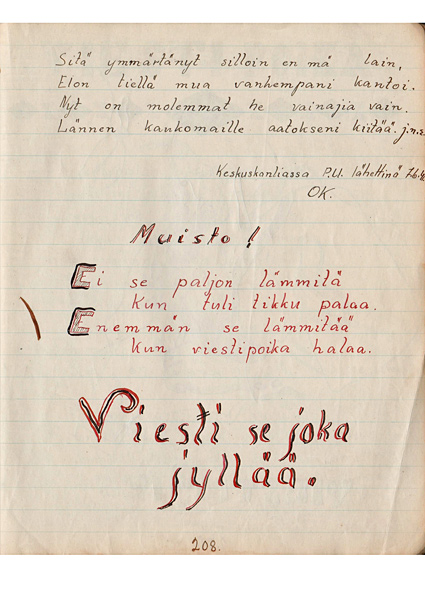 Sitä ymmärtänyt silloin en mä lain,
Elon tiellä mua vanhempani kantoi.
Nyt on molemmat he vainajia vain.
Lännen kaukomaille aatokseni kiitää. j.n.e.
Keskuskansliassa P.U. lähettinä
OK.
Muisto!
Ei se paljon lämmitä
Kun tuli tikku palaa.
Enemmän se lämmitää
Kun viestipoika halaa.
Viesti se joka
jyllää.
208.